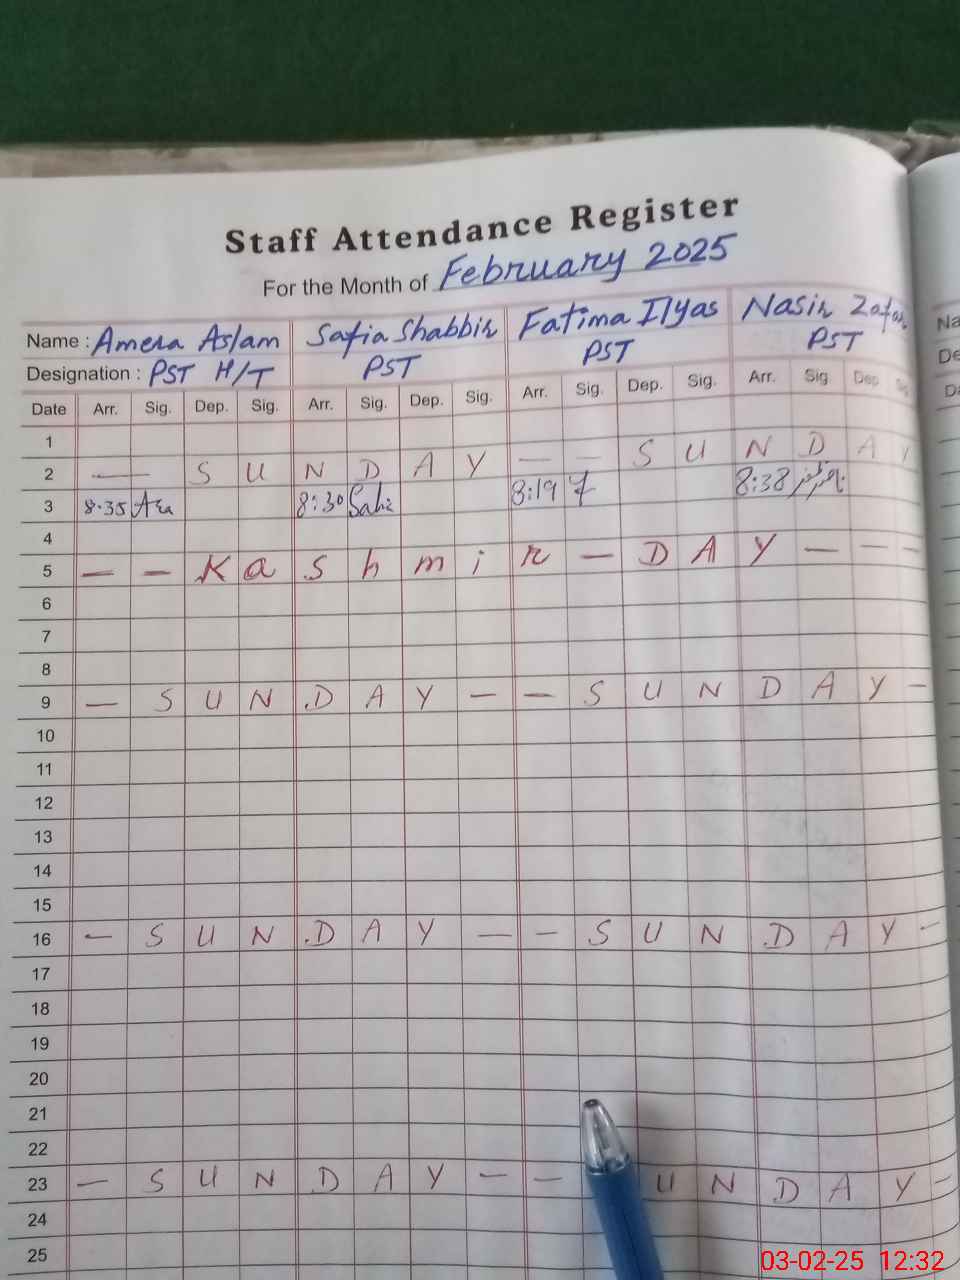 Staff Attendance Register
For the Month of February 2025
Name : Amera Aslam Safia Shabbir Fatima Ilyas Nasir Zafar Na
Designation : PST H/T PST PST PST De
Date Arr. Sig. Dep. Sig. Arr. Sig. Dep. Sig. Arr. Sig. Dep. Sig. Arr. Sig Dep Sig Da
1
2 — — S U N D A Y — — S U N D A Y
3 8:35 8:30 8:19 8:38
4
5 — — K a s h m i r — D A Y — — —
6
7
8
9 — S U N D A Y — — S U N D A Y —
10
11
12
13
14
15
16 — S U N D A Y — — S U N D A Y —
17
18
19
20
21
22
23 — S U N D A Y — — U N D A Y —
24
25
03-02-25 12:32